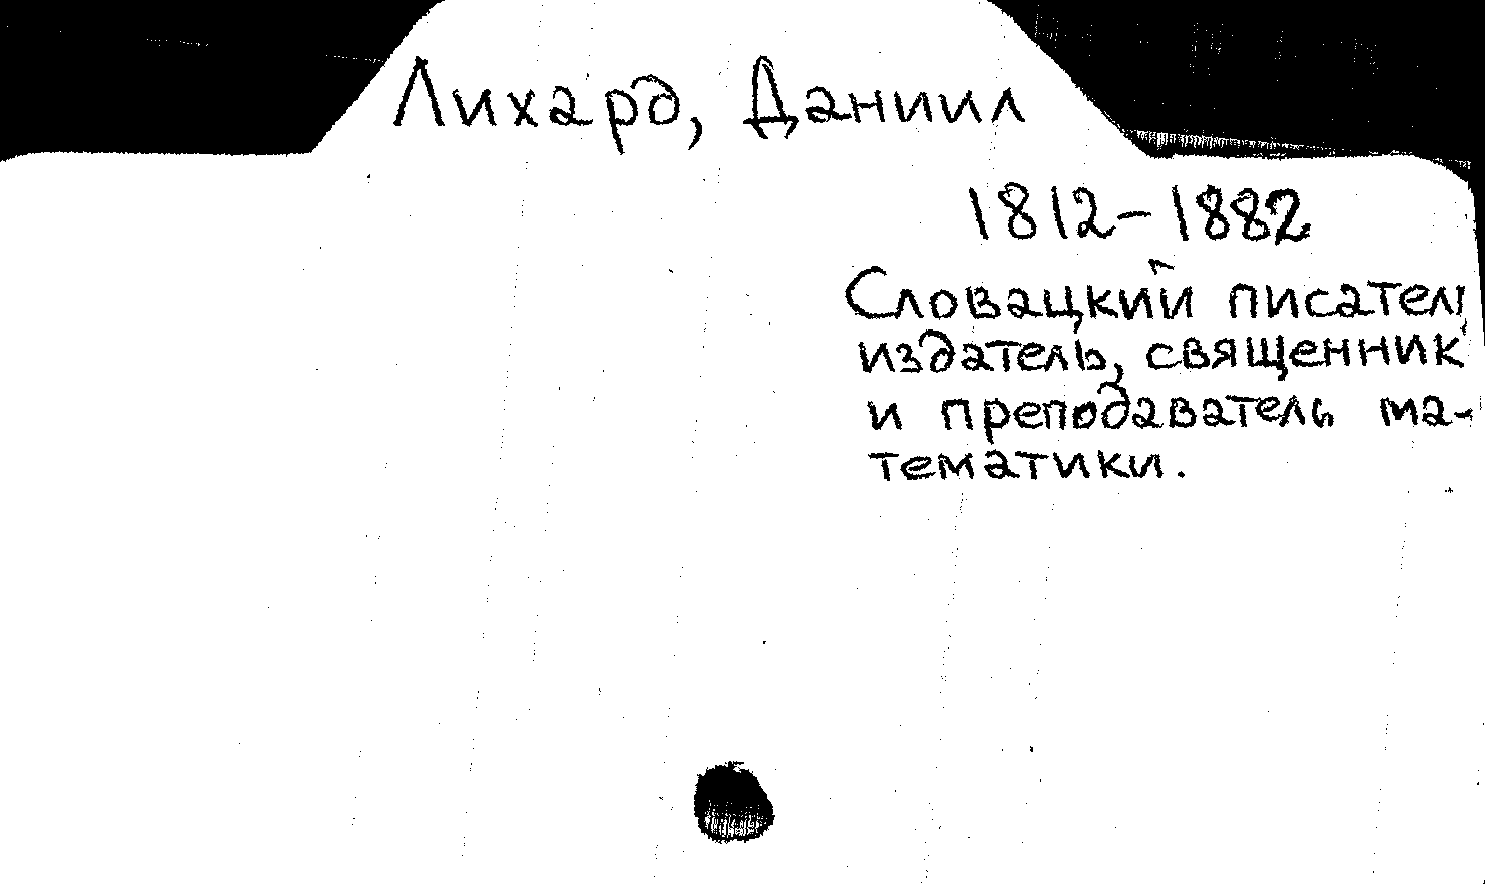 Лихард, Даниил
1812-1882
Словацкий писатель,
издатель, священник
и преподаватель ма-
тематики.